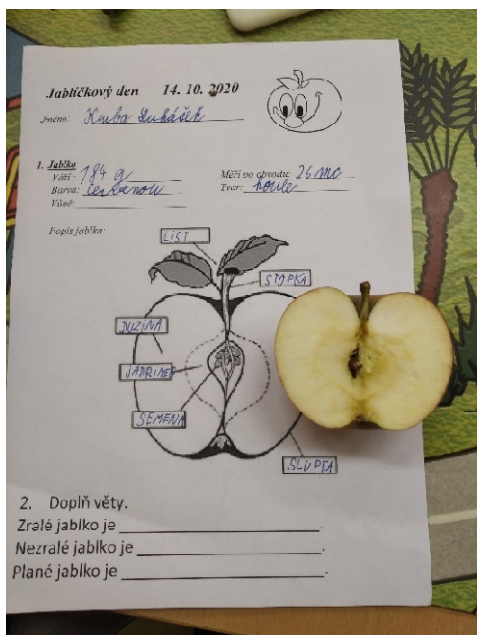 Jablíčkový den 14. 10. 2020
Jméno: Kuba Lukášek
1. Jablko
Váží: 184 g Měří po obvodu: 26 mc
Barva: červanou Tvar: koule
Vůně:
Popis jablka:
LIST
STOPKA
DUZINA
JADRINEC
SEMENA
SLUPKA
2. Doplň věty.
Zralé jablko je
Nezralé jablko je
Plané jablko je